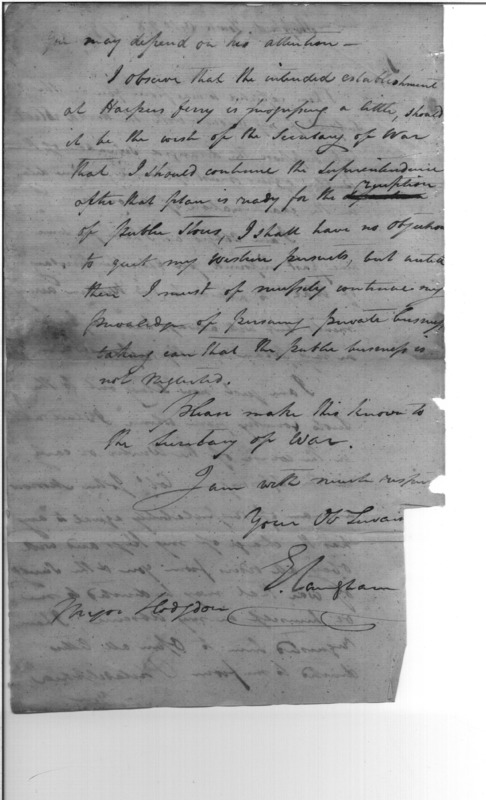 You may depend on his attention —
I observe that the intended establishment
at Harpers ferry is progressing a little, should
it be the wish of the Secretary of War
that I should continue the Superintendence
after that place is ready for the reception
of public Stores, I shall have no objection
to quit my western pursuits, but until
then I must of necessity continue my
priviledge of pursuing private business
taking care that the public business is
not neglected.
Please make this known to
the Secretary of War.
I am with much respe
Your Ob Servan
E. Langham
Major Hodgdon